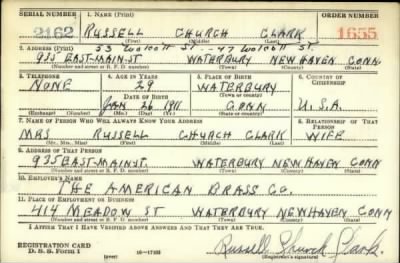 SERIAL NUMBER 1. NAME (Print) ORDER NUMBER
2162 RUSSELL CHURCH CLARK 1655
(First) (Middle) (Last)
53 Wolcott St. -- 47 Wolcott St.
2. ADDRESS (Print)
935 EAST-MAIN-ST WATERBURY NEW HAVEN CONN
(Number and street or R. F. D. number) (Town) (County) (State)
3. TELEPHONE 4. AGE IN YEARS 5. PLACE OF BIRTH 6. COUNTRY OF CITIZENSHIP
NONE 29 WATERBURY
DATE OF BIRTH (Town or county)
JAN 26 1911 CONN U.S.A.
(Exchange) (Number) (Mo.) (Day) (Yr.) (State or country)
7. NAME OF PERSON WHO WILL ALWAYS KNOW YOUR ADDRESS 8. RELATIONSHIP OF THAT PERSON
MRS RUSSELL CHURCH CLARK WIFE
(Mr., Mrs., Miss) (First) (Middle) (Last)
9. ADDRESS OF THAT PERSON
935 EAST-MAIN ST. WATERBURY NEW HAVEN CONN
(Number and street or R. F. D. number) (Town) (County) (State)
10. EMPLOYER'S NAME
THE AMERICAN BRASS CO.
11. PLACE OF EMPLOYMENT OR BUSINESS
414 MEADOW ST WATERBURY NEW HAVEN CONN
(Number and street or R. F. D. number) (Town) (County) (State)
I AFFIRM THAT I HAVE VERIFIED ABOVE ANSWERS AND THAT THEY ARE TRUE.
REGISTRATION CARD
D. S. S. Form 1 (over) Russell Church Clark.
(Registrant's signature)